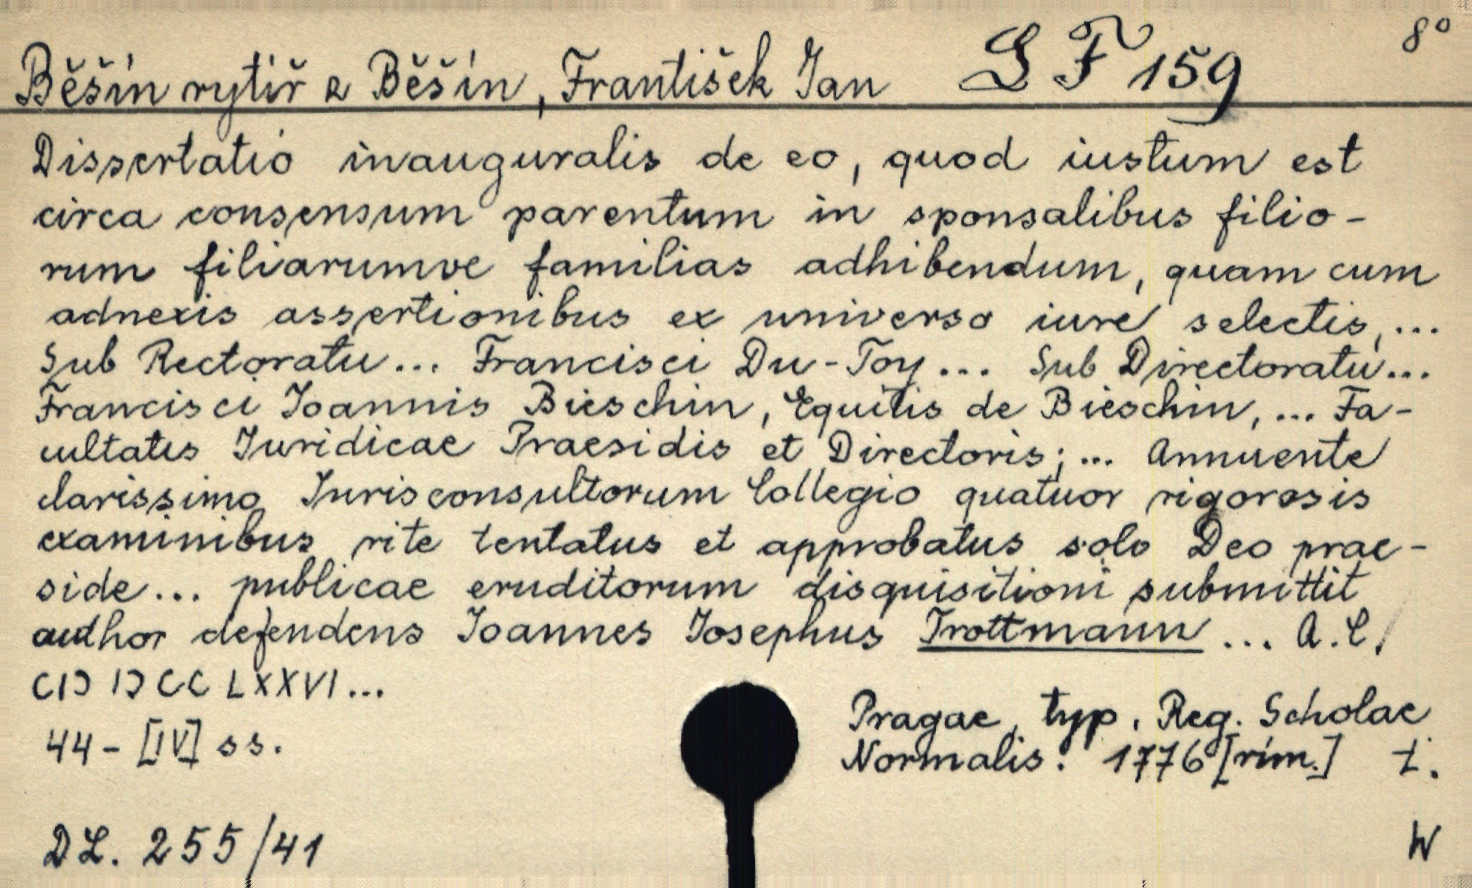 Běšín rytíř z Běšín, František Jan L F 159 8°
Dissertatio inauguralis de eo, quod iustum est
circa consensum parentum in sponsalibus filio-
rum filiarumve familias adhibendum, quam cum
adnexis assertionibus ex universo iure selectis, ...
Sub Rectoratu... Francisci Du-Toy... Sub Directoratu...
Francisci Joannis Bieschin, Equitis de Bieschin, ... Fa-
cultatis Juridicae Praesidis et Directoris; ... Annuente
clarissimo Jurisconsultorum Collegio quatuor rigorosis
examinibus rite tentatus et approbatus solo Deo prae-
side... publicae eruditorum disquisitioni submittit
author defendens Joannes Josephus Trottmann... A. C.
CIƆ IƆ CC LXXVI...
Pragae, typ. Reg. Scholae
44-[IV] ss.
Normalis. 1776 [řím.] t.
DL. 255/41
W